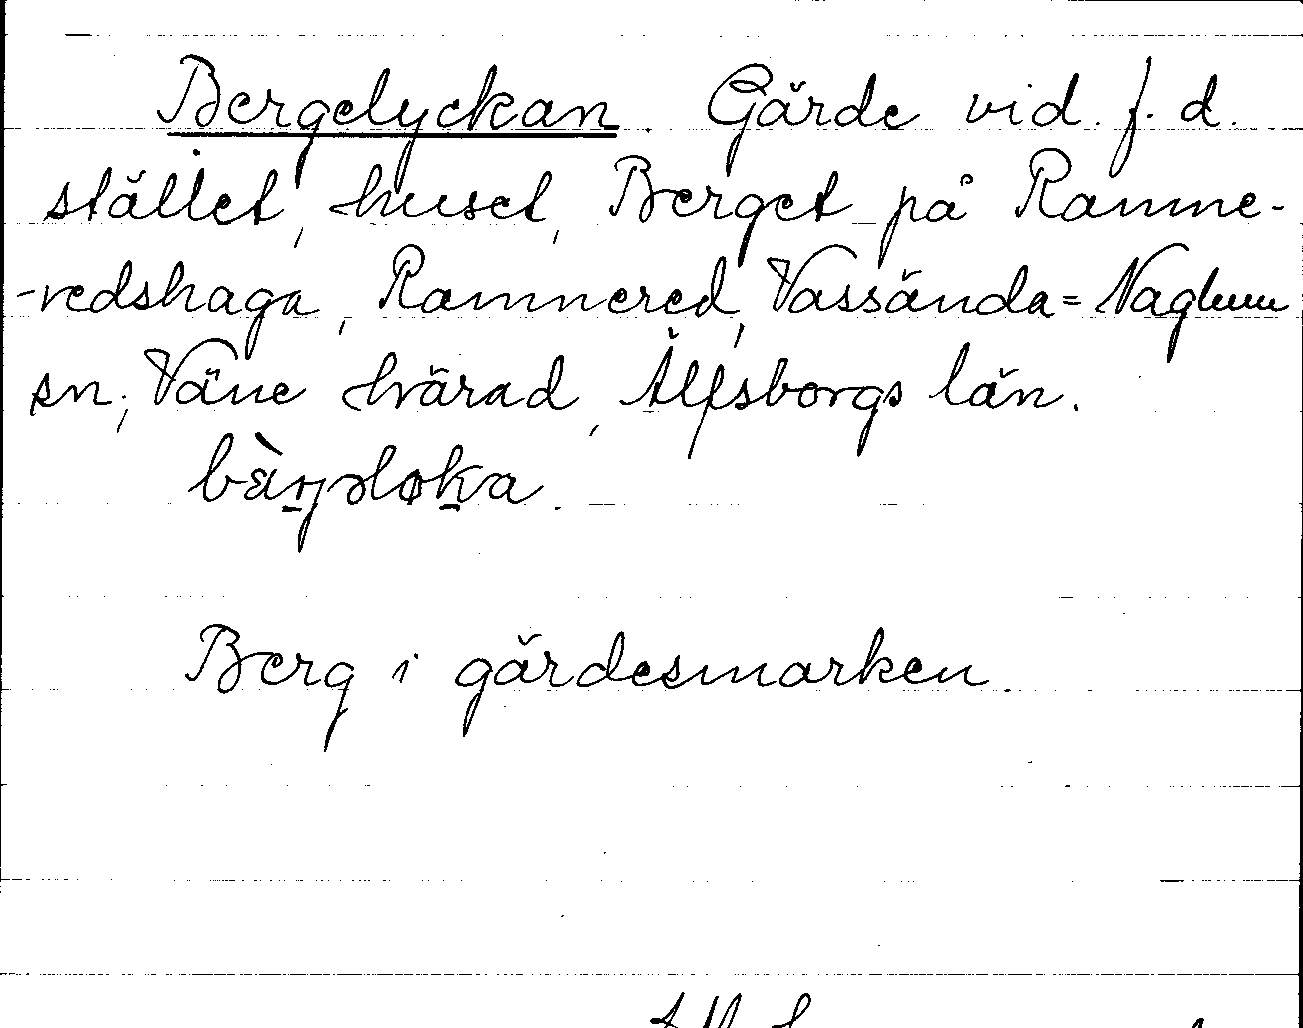 Bergelyckan. Gärde vid f. d.
stället, huset, Berget på Ramne-
-redshaga, Ramnered, Vassända=Naglum
sn, Väne härad, Älfsborgs län.
Berg i gärdesmarken.